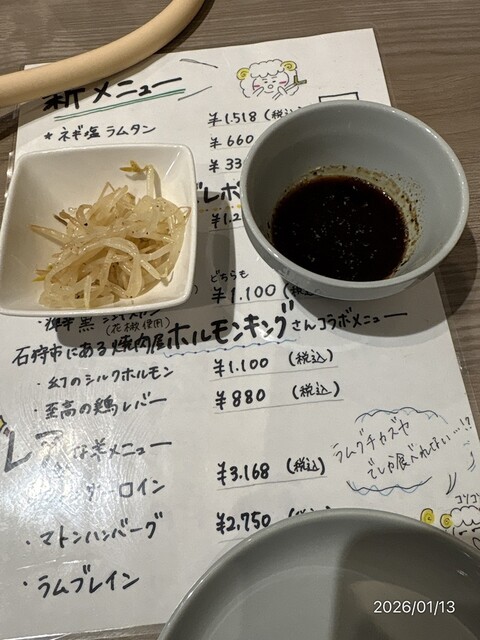 新メニュー
★ ネギ塩 ラムタン ¥1.518 (税込)
¥660
¥33
レボ
¥1.2
どちらも
¥1.100
(花椒使用)
石狩市にある焼肉屋ホルモンキングさんコラボメニュー
・幻のシルクホルモン ¥1.100 (税込)
・至高の鶏レバー ¥880 (税込)
レアな羊メニュー
ーロイン ¥3.168 (税込)
・マトンハンバーグ ¥2,750
・ラムブレイン
ラムクチカズヤ
でしか食べれない…!?
コソコソ
2026/01/13